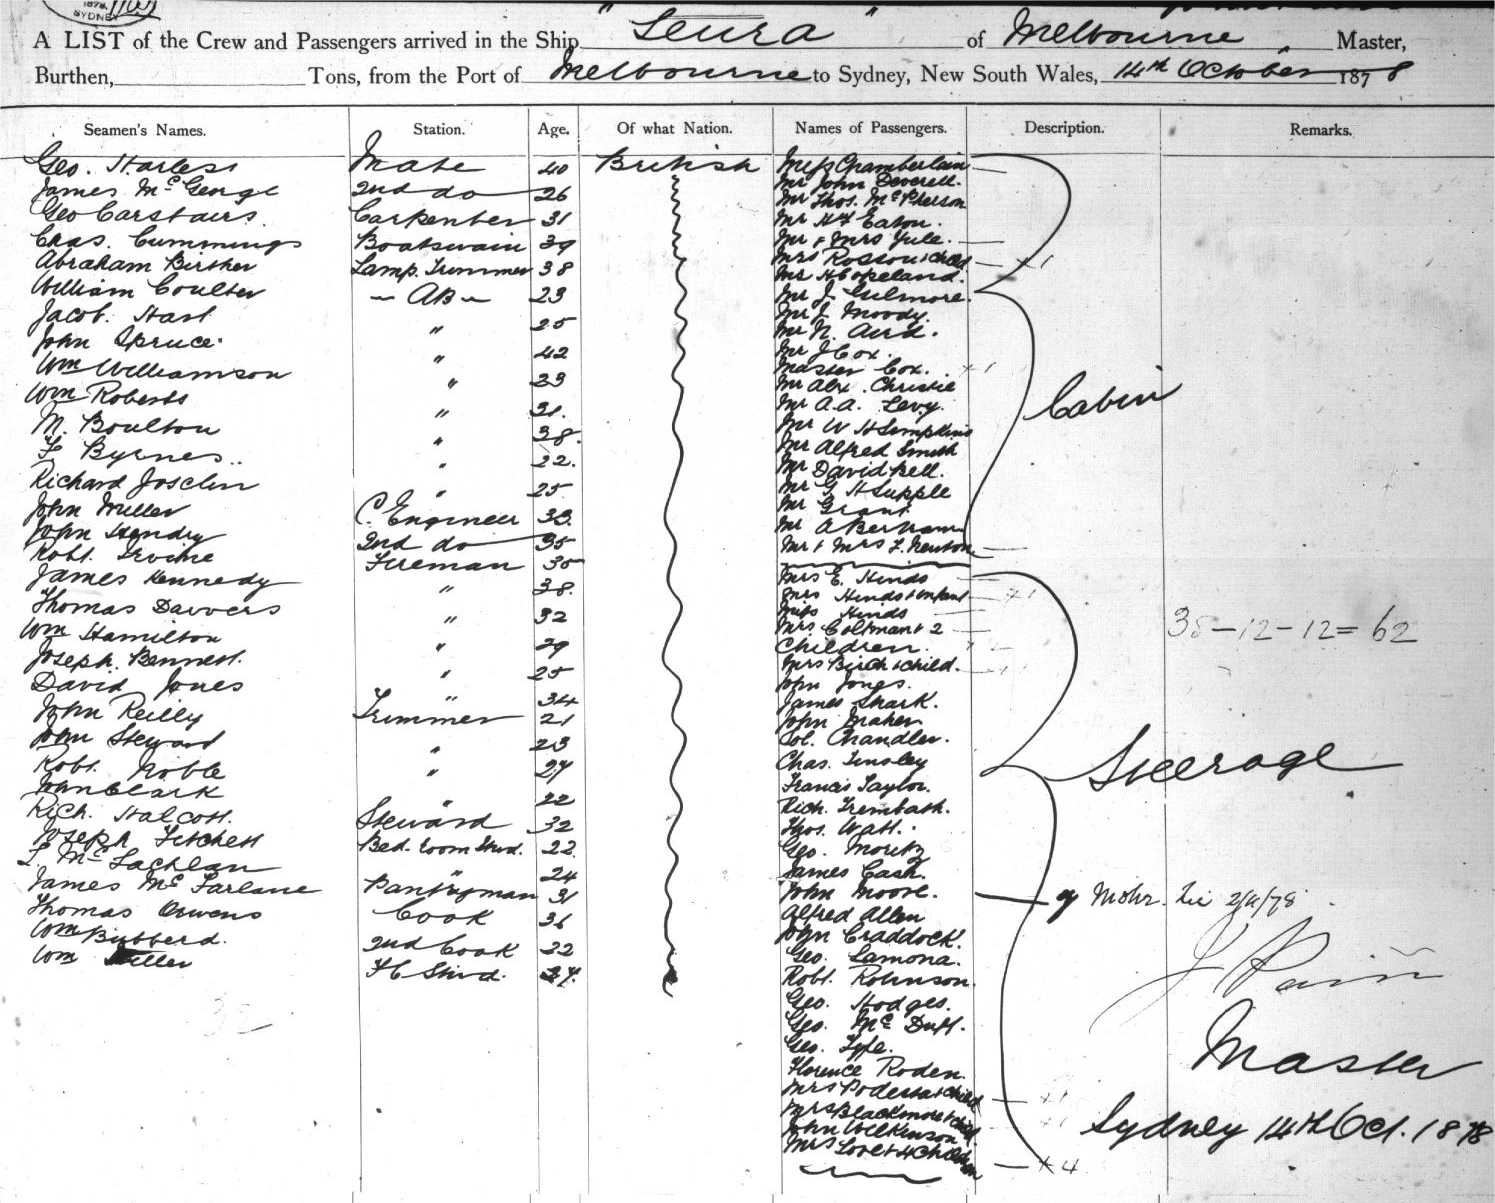 1878
SYDNEY
A LIST of the Crew and Passengers arrived in the Ship "Leura" of Melbourne Master,
Burthen, Tons, from the Port of Melbourne to Sydney, New South Wales, 14th October 1878
Seamen's Names. Station. Age. Of what Nation. Names of Passengers. Description. Remarks.
Geo. Harless Mate 40 British
James McGeorge 2nd do 26
Geo Carstairs Carpenter 31
Chas. Cummings Boatswain 39
Abraham Birther Lamp Trimmer 38
William Coulter AB 23
Jacob Hast " 25
John Spruce " 42
Wm Williamson " 23
Wm Roberts " 21.
M. Boulton " 38.
F Byrnes " 22.
Richard Josclin " 25
John Miller C. Engineer 33
John Hendry 2nd do 35
Robt. Irvine Fireman 35
James Kennedy " 38.
Thomas Davvers " 32
Wm Hamilton " 29
Joseph Bennett. " 25
David Jones " 34
John Reilly Trimmer 21
John Steward " 23
Robt. Noble " 27
John Clark " 22
Rich. Halcott. Steward 32
Joseph Fitchett Bed-room Stwd. 22
L. McLachlan " 24
James McFarlane Pantryman 31
Thomas Orwens Cook 36
Wm Bibberd. 2nd Cook 22
Wm Miller F C Stwd. 27.
35
Miss Chamberlain
Mr John Deverell.
Mr Thos. McPherson
Mr H F Eaton.
Mr & Mrs Yule.
Mrs Rosson & child +1
Mr H Copeland.
Mr J. Gilmore.
Mr J. Moody.
Mr N. Aird.
Mr J Cox.
Master Cox. +1
Mr Alex. Christie
Mr A.A. Levy.
Mr W H Simpkins
Mr Alfred Smith
Mr David Bell.
Mr G H Supple
Mr Grant
Mr A Bertram
Mr & Mrs F. Newton
Cabin
Mrs E. Hinds
Mrs Hinds & infant +1
Miss Hinds
Mrs Coltman & 2
Children.
Mrs Birch & child.
John Jones.
James Shark.
John Maher.
Sol. Chandler.
Chas. Tinsley
Francis Taylor.
Rich. Trembath.
Thos. Watt.
Geo. Moritz
James Cash.
John Moore.
Alfred Allen
John Craddock.
Geo. Lamona.
Robt. Robinson.
Geo. Hodges.
Geo. McDuff.
Geo. Fyfe.
Florence Roden.
Mrs Podesta & child +1
Mrs Blackmore & child +1
John Wilkinson
Mrs Love & 4 Children +4
Steerage
38-12-12=62
Master
Sydney 14th Oct. 1878